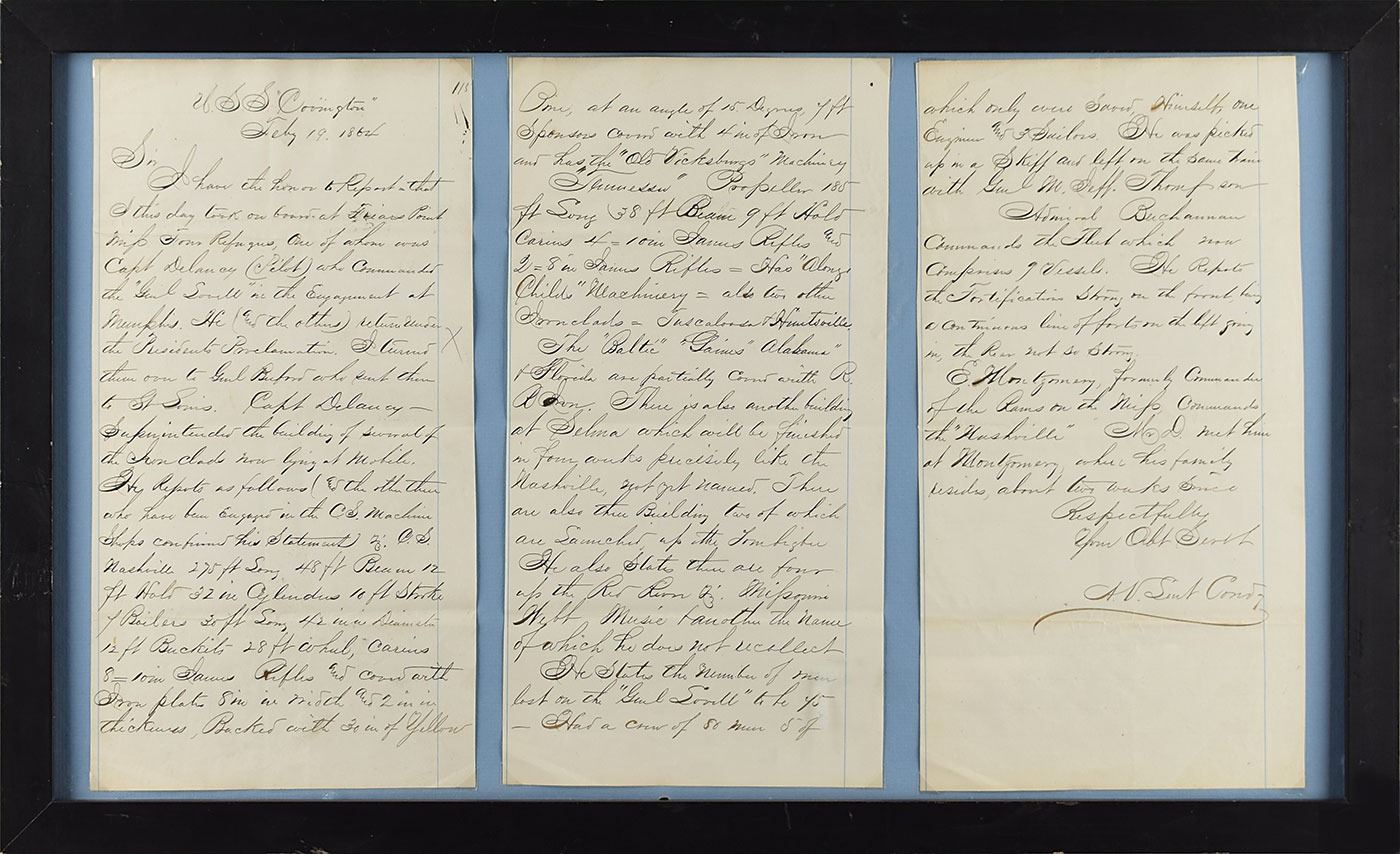 118
U. S. S. "Covington"
Feby 19, 1864
Sir
I have the honor to Report that
I this day took on board at Friars Point
Miss Four Refugees, One of whom was
Capt Delancy (Pilot) who Commanded
the "Genl Lovell" in the Engagement at
Memphis. He (and the others) return under
the Presidents Proclamation. I turned
them over to Genl Buford who sent them
to St Louis. Capt Delancy —
Superintended the building of several of
the Iron clads now lying at Mobile.
He Reports as follows (and the other three
who have been Engaged in the C.S. Machine
Shops confirmed his Statement) viz. C. S.
Nashville 275 ft Long 48 ft Beam 12
ft Hold 32 in Cylenders 10 ft Stroke
7 Boilers 30 ft Long 42 in in Diameter
12 ft Buckets 28 ft Wheel, Carries
8 = 10 in James Rifles and coverd with
Iron plates 8 in in width and 2 in in
thickness, Backed with 30 in of Yellow
Pine, at an angle of 15 Degrees, 7 ft
Sponsors coverd with 4 in of Iron
and has the "Old Vicksburgs" Machinery
"Tennessee" Propeller 185
ft Long 38 ft Beam 9 ft Hold
Carries 4 = 10 in James Rifles and
2 = 8 in James Rifles = Has "Alonzo
Childs" Machinery = also two other
Ironclads = Tuscaloosa & Huntsville
The "Baltic" "Gaines" Alabama"
& Florida are partially coverd with R.
R Iron. There is also another building
at Selma which will be finished
in four weeks precisely like the
Nashville, not yet named. There
are also three Building two of which
are Launched up the Tombigbee
He also States there are four
up the Red River viz. Missouri
Webb Music & another the Name
of which he does not recollect
He States the Number of men
lost on the "Genl Lovell" to be 75
— Had a crew of 80 men 5 of
which only were Saved, Himself, one
Engineer and 3 Sailors. He was picked
up in a Skiff and left on the same train
with Genl M. Jeff. Thompson
Admiral Buchannan
Commands the Fleet which now
Comprises 9 Vessels. He Reports
the Fortifications Strong on the front, being
a continuous line of forts on the left going
in, the Rear not so Strong.
E. Montgomery, formerly Commander
of the Rams on the Miss, Commands
the "Nashville" met him
at Montgomery, where his family
resides, about two weeks since
Respectfully
Your Obt Servt